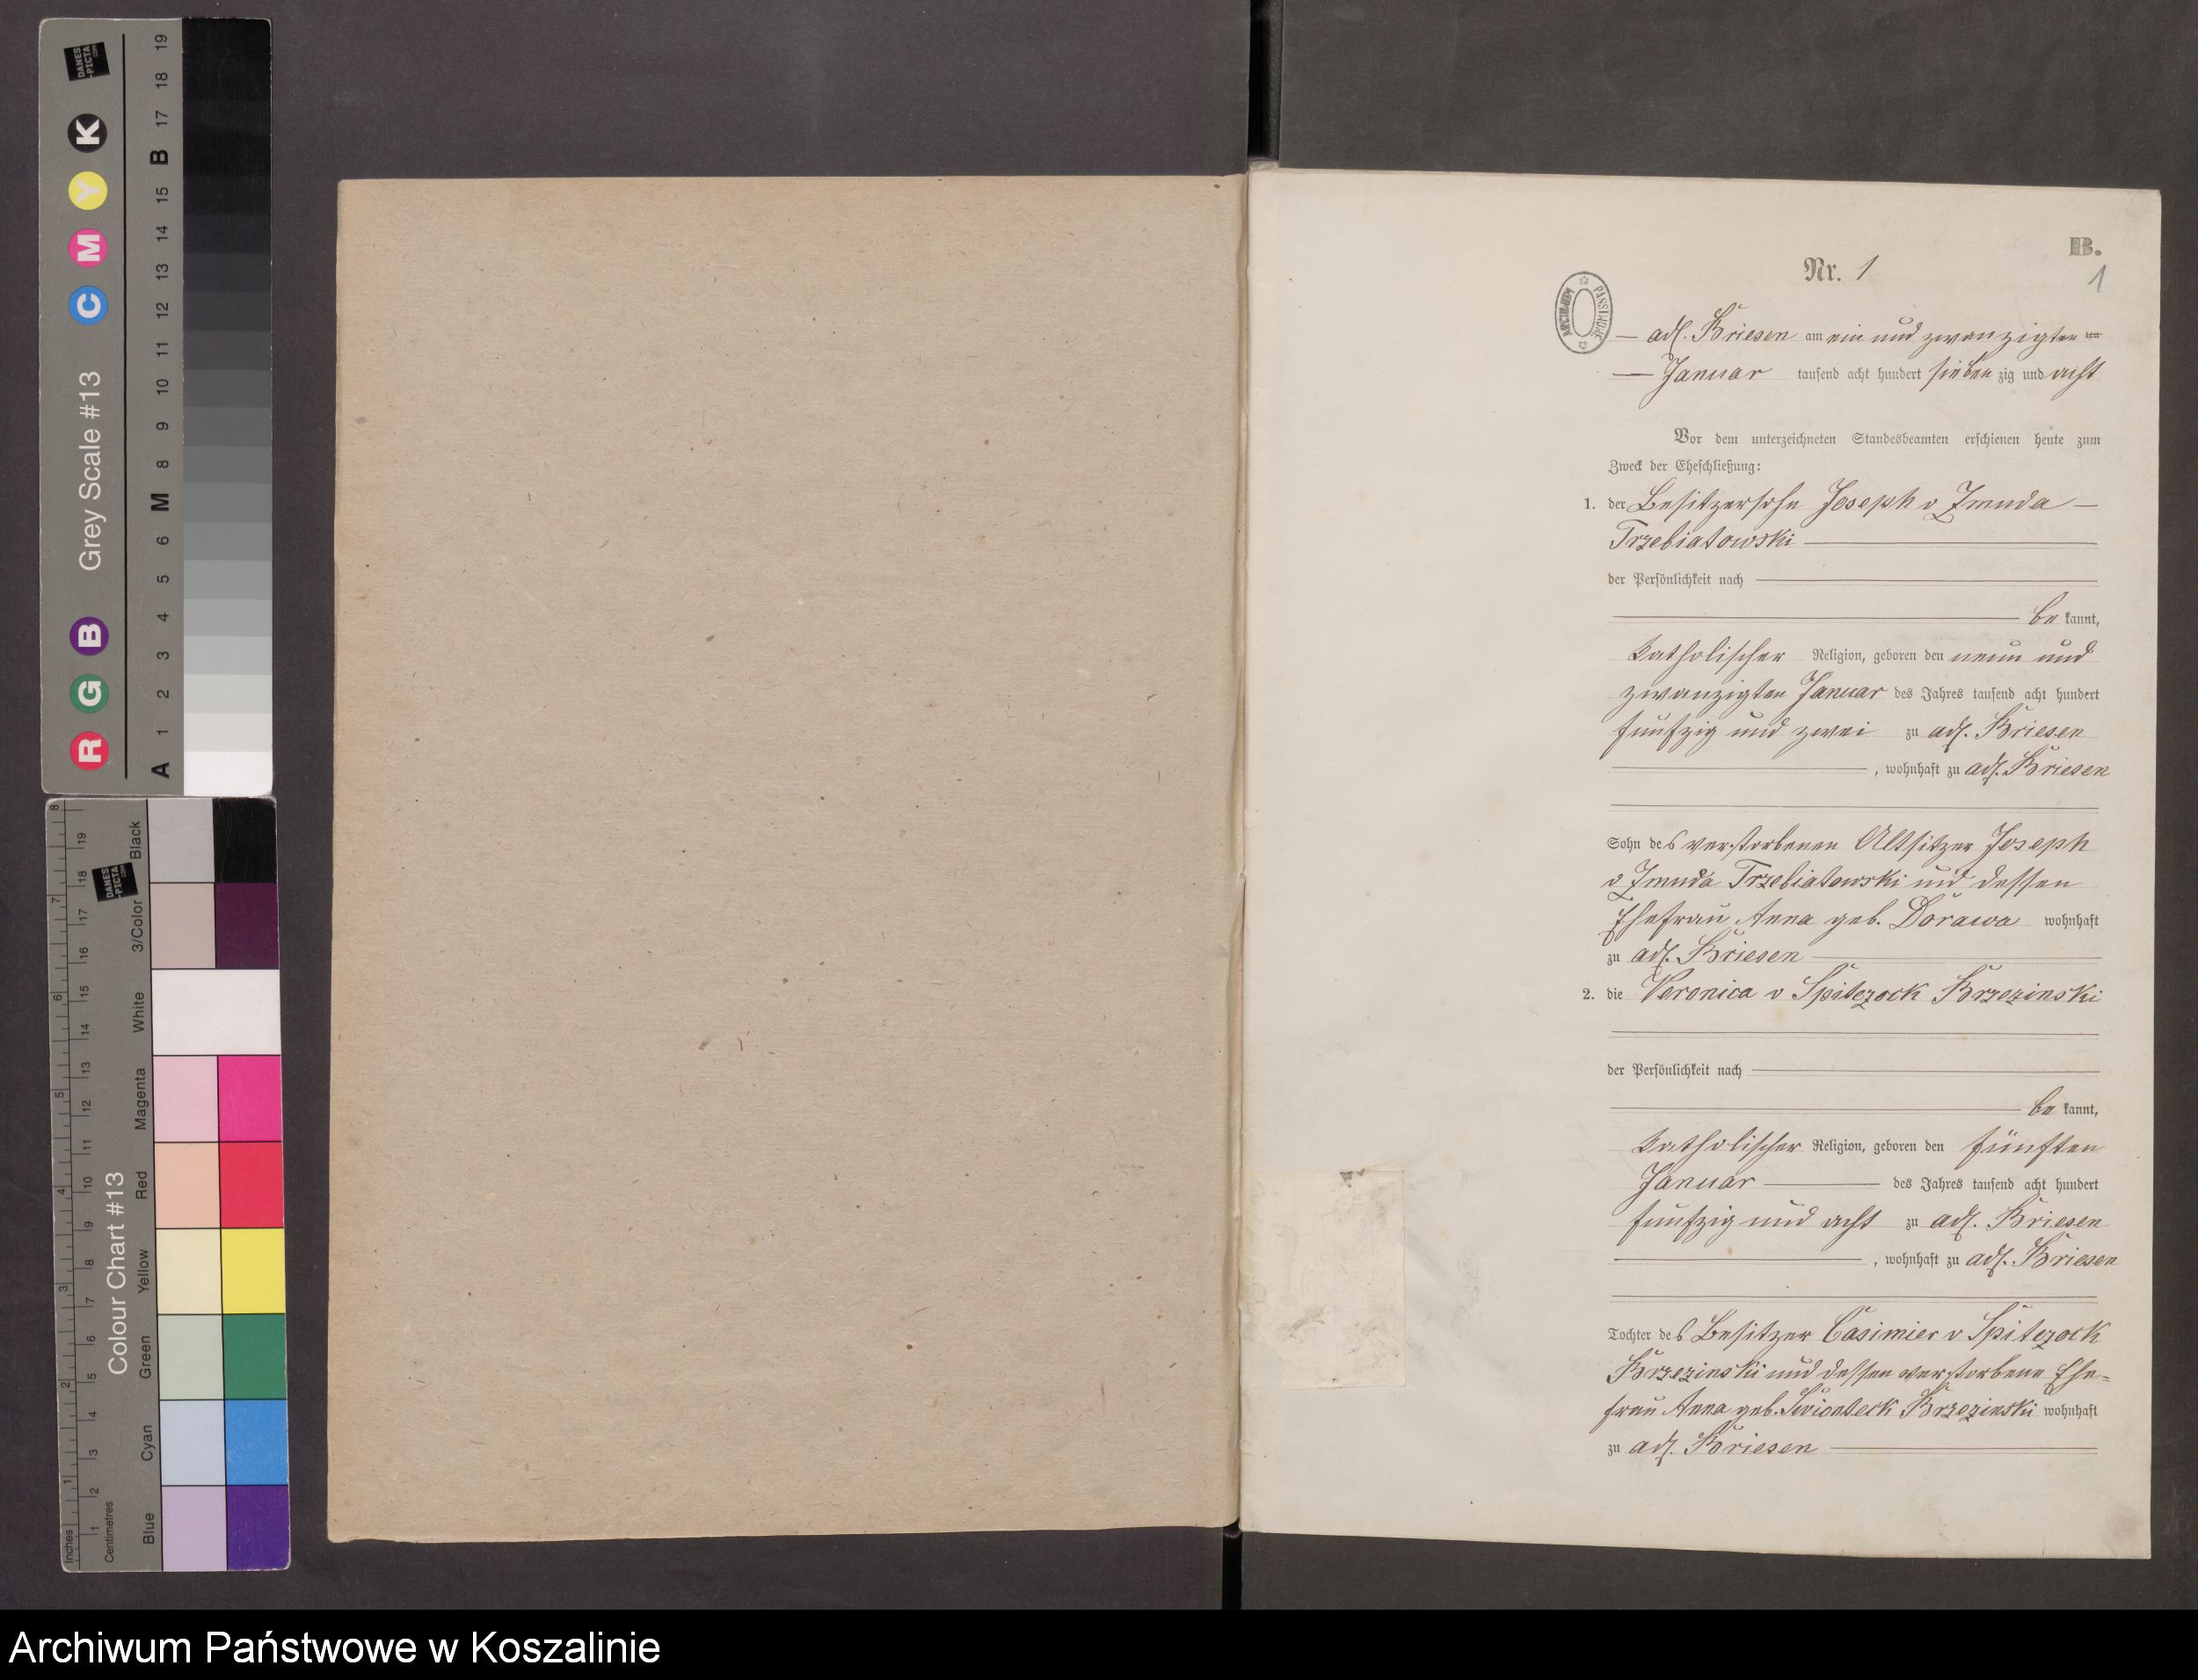 DANES
-PICTA
.COM
Grey Scale #13
R G B C M Y K
A 1 2 3 4 5 6 M 8 9 10 11 12 13 14 15 B 17 18 19
Colour Chart #13
DANES
-PICTA
.COM
Inches 1 2 3 4 5 6 7 8
Centimetres 1 2 3 4 5 6 7 8 9 10 11 12 13 14 15 16 17 18 19
Blue Cyan Green Yellow Red Magenta White 3/Color Black
B.
Nr. 1
1
ARCHIWUM PAŃSTWOWE
adl. Briesen am ein und zwanzigten ten
Januar tausend acht hundert sieben zig und acht
Vor dem unterzeichneten Standesbeamten erschienen heute zum
Zweck der Eheschließung:
1. der Besitzersohn Joseph v Zmuda
Trzebiatowski
der Persönlichkeit nach
be kannt,
katholischer Religion, geboren den neun und
zwanzigten Januar des Jahres tausend acht hundert
fünfzig und zwei zu adl. Briesen
, wohnhaft zu adl. Briesen
Sohn des verstorbenen Altsitzer Joseph
v Zmuda Trzebiatowski und dessen
Ehefrau Anna geb. Dorawa wohnhaft
zu adl. Briesen
2. die Veronica v Spiczock Brzezinski
der Persönlichkeit nach
be kannt,
katholischer Religion, geboren den fünften
Januar des Jahres tausend acht hundert
fünfzig und acht zu adl. Briesen
, wohnhaft zu adl. Briesen
Tochter des Besitzer Casimier v Spiczock
Brzezinski und dessen verstorbene Ehe-
frau Anna geb. Brzezinski wohnhaft
zu adl. Briesen
Archiwum Państwowe w Koszalinie